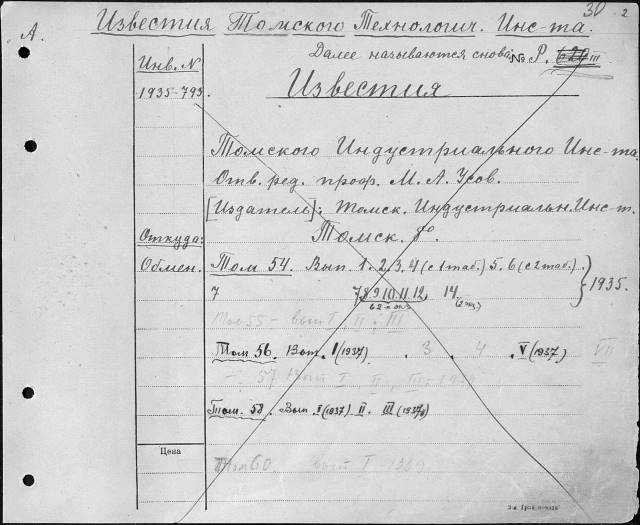 30 2
А. Известия Томского Технологич. Инс-та.
Далее называются снова: № Р. 620 III
Инв. N
1935-793.
Известия
Томского Индустриального Инс-та
Отв. ред. проф. М. А. Усов.
[Издатель]: Томск. Индустриальн. Инс-т.
Откуда: Томск. 8°.
Обмен. Том 54. Вып. 1. 2, 3, 4 (с 1 таб.) 5. 6 (с 2 таб.) 1935.
7 7 8 9 10 11 12, 14
Том 55 – вып I, II, III
Том 56. Вып. I (1937) . 3 . 4 . V (1937) VII
57 Вып I, II, III
Том. 58. Вып. I (1937) II. III
Цена
Том 60 вып I 1939